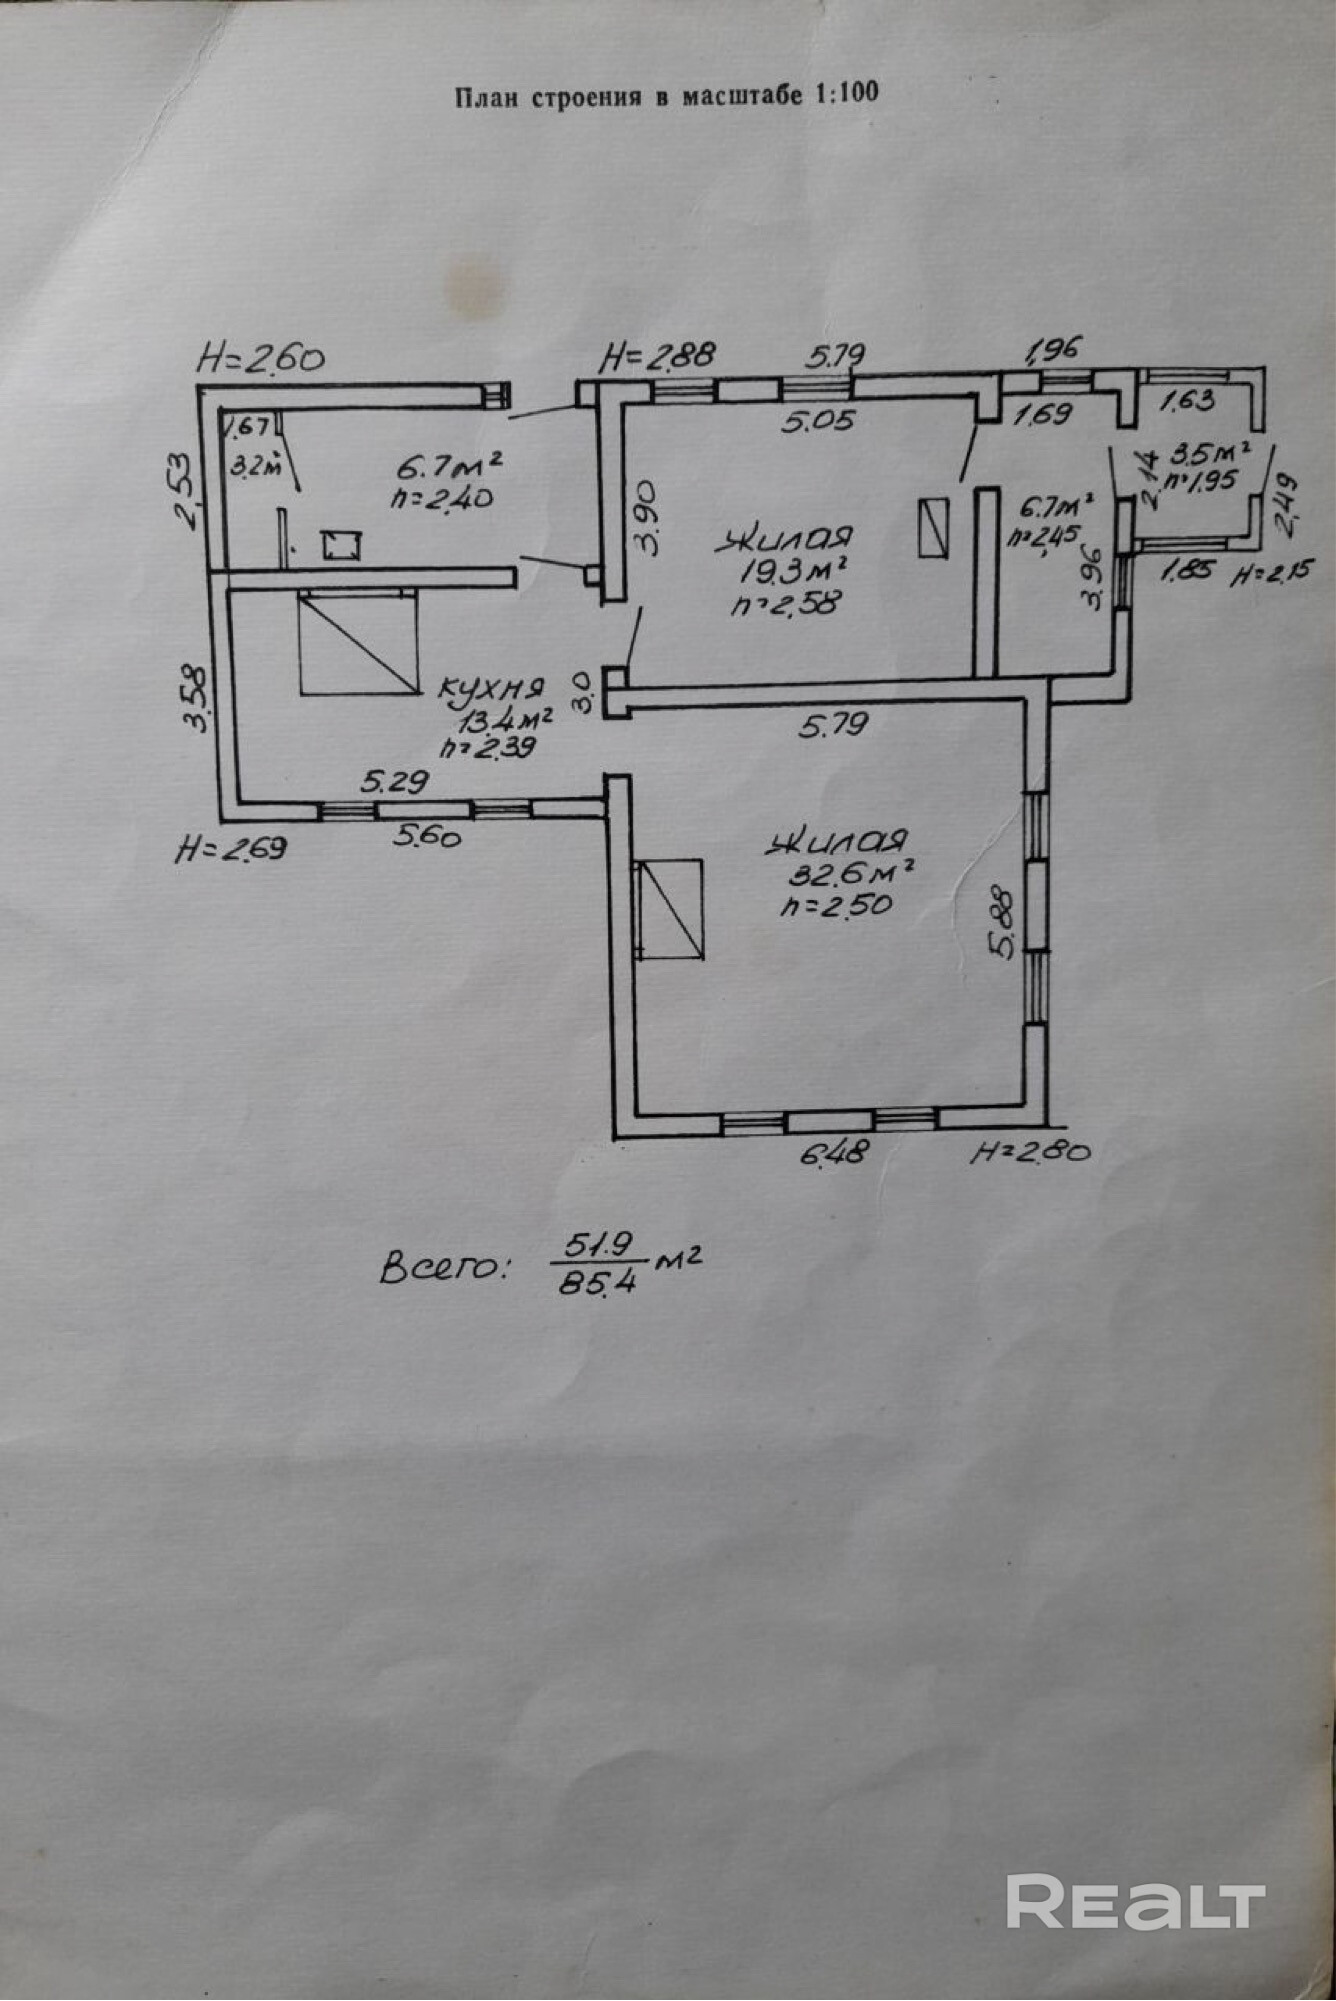 План строения в масштабе 1:100
H=2.60
H=2.88
5.79
1.96
1.67
5.05
1.69
1.63
3.2м²
6.7м²
h=2.40
2.53
3.90
Жилая
19.3м²
h=2.58
6.7м²
h=2.45
2.14
3.5м²
h=1.95
2.49
3.96
1.85
H=2.15
3.58
кухня
13.4м²
h=2.39
3.0
5.79
5.29
5.60
H=2.69
Жилая
32.6м²
h=2.50
5.88
6.48
H=2.80
Всего: 51.9
85.4 м²
REALT